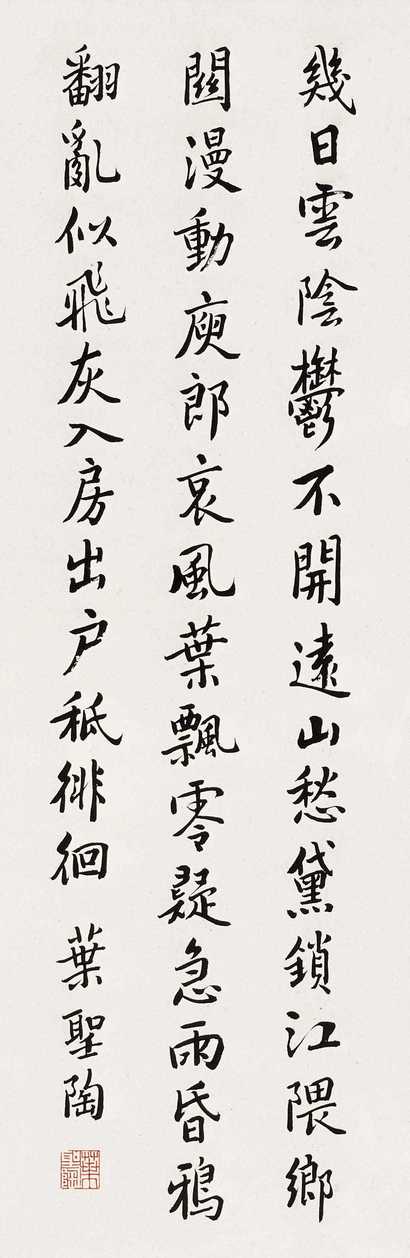 幾日雲陰鬱不開遠山愁黛鎖江隈鄉
關漫動庾郎哀風葉飄零疑急雨昏鴉
翻亂似飛灰入房出户秪徘徊 葉聖陶
葉聖陶